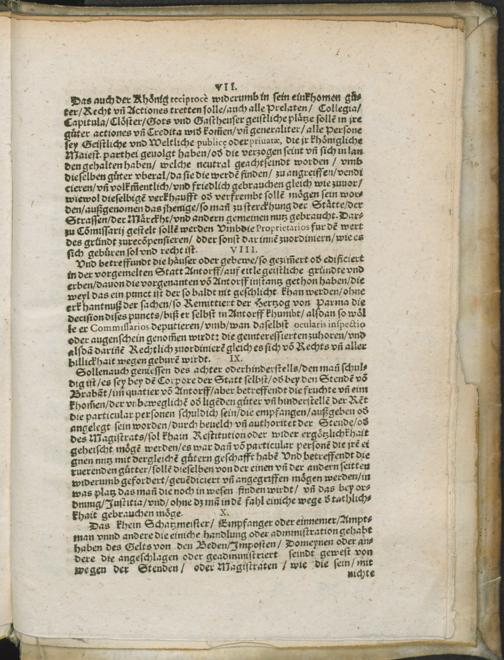 VII.
Das auch der Khönig reciprocè widerumb in sein einkhomen güe-
ter/ Recht vñ Actiones tretten solle/ auch alle Prelaten/ Collegia/
Capitula/ Clöster/ Gots vnd Gastheuser geistliche plätze sollē in jre
güter actiones vñ Credita wid kom̄en/ vñ generaliter/ alle Persone
sey Geistliche vnd Weltliche publicę oder priuatæ, die jr khönigliche
Maiest. parthei geuolgt haben/ ob die verzogen seint vñ sich in lan
den gehalten haben/ welche neutral geacht seindt worden / vmb
dieselben güter vberal/ da sie die werdē finden/ zu angreiffen/ vendi
cieren/ vñ volkm̄entlich/ vnd friedlich gebrauchen gleich wie zuuor/
wiewol dieselbigē verkhaufft ob verfrembt sollē mögen sein wor-
den/ außgenomen das jhenige/ so mañ zu sterckhung der Stätte/ der
Strassen/ der Märckht/ vnd andern gemeinen nutz gebraucht. Dar-
zu Cōmissarij gestelt sollē werden Vmb die Proprietarios fur dē wert
des gründt zu recōpensieren/ oder sonst dar innē zuordiniern/ wie es
sich gebüren sol vnd recht ist.
VIII.
Vnd betreffundt die häuser oder gebewe/ so gezim̄ert ob edificiert
in der vorgemelten Statt Antorff/ auf eitle geistliche gründte vnd
erben/ dauon die vorgenanten vō Antorff instantz gethon haben/ die
weyl das ein punct ist der so baldt nit geschlicht khan werden/ ohne
erkhantnuß der sachen/ so Remittiert der Hertzog von Parma die
decision dises puncts/ biß er selbst in Antorff khumbt/ alsdan so wöl
le er Commissarios deputieren/ vmb/ wan daselbst ocularis inspectio
oder augenschein genom̄en wirdt: die geinteressierten zuhoren/ vnd
alsdā darinē Rechtlich zuordinierē gleich es sich vō Rechts vñ aller
billickhait wegen gebürē wirdt.
IX.
Sollen auch geniessen des achter oder hinderstells/ den mañ schul-
dig ist/ es sey bey dē Corpore der Statt selbst/ ob bey den Stendē vō
Brabāt/ im quatier vō Antorff/ aber betreffendt die fruchte vñ ein
khom̄en/ der vnbeweglichē ob ligēden güter vñ hinderstellē der Rēt
die particular personen schuldich sein/ die empfangen/ außgeben ob
angelegt sein worden/ durch beuelch vñ authoritet der Stende/ ob
des Magistrats/ sol khain Restitution oder wider ergötzlickhait
geheischt mögē werden/ es war dañ vō particular personē die jrē ei
gnen nutz mit dergleichē gütern geschafft habē Vnd betreffendt die
ruerenden güter/ sollē dieselben von der einen vñ der andern seitten
widerumb gefordert/ geuēdiciert vñ angegriffen mögen werden/ in
was platz das mañ die noch in wesen finden wirdt/ vñ das bey or-
dnung/ Justitia/ vnd/ ohne dz mā in dē fahl einiche wege ð tathlich-
khait gebrauchen möge.
X.
Das khein Schatzmeister/ Empfanger oder einnemer/ Ampts-
man vnnd andere die einiche handlung oder administration gehabt
haben des Gelts von den Beden/ Imposten/ Domeynen oder an-
dere die angeschlagen oder geadministriert seindt gewest von
wegen der Stenden/ oder Magistraten / wie die sein/ mit
nichte